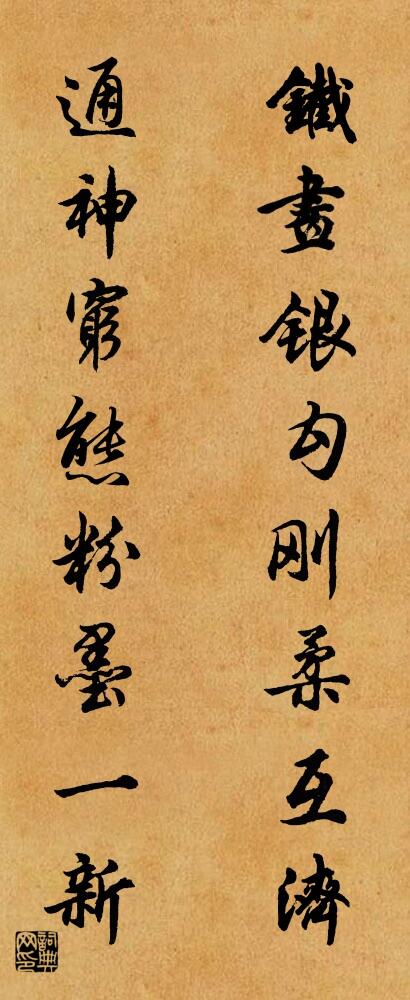 鐵畫銀勾刚柔互濟
通神窮態粉墨一新
詞典网印